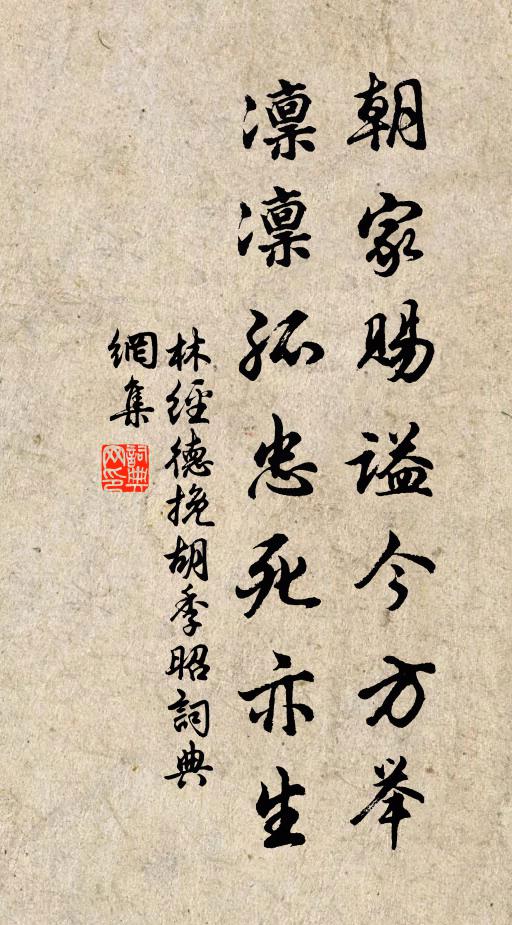 朝家賜謚今方举
凛凛孤忠死亦生
林經德挽胡季昭詞典
網集
詞典
网印